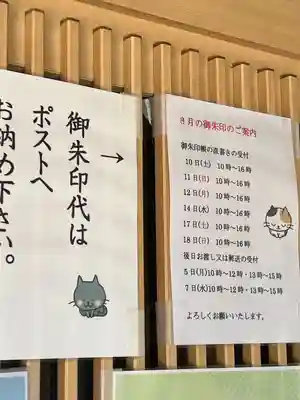 御朱印代は
ポストへ
お納め下さい。
→
8月の御朱印のご案内
御朱印帳の直書きの受付
10日(土) 10時〜16時
11日(日) 10時〜16時
12日(月) 10時〜16時
14日(水) 10時〜16時
17日(土) 10時〜16時
18日(日) 10時〜16時
後日お渡し又は郵送の受付
5日(月)10時〜12時・13時〜15時
7日(水)10時〜12時・13時〜15時
よろしくお願いいたします。